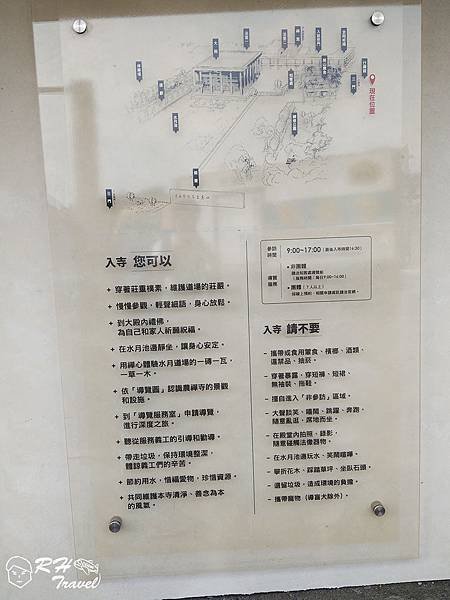 大殿
現在位置
入寺 您可以
+ 穿著莊重樸素，維護道場的莊嚴。
+ 慢慢參觀，輕聲細語，身心放鬆。
+ 到大殿內禮佛，
為自己和家人祈願祝福。
+ 在水月池邊靜坐，讓身心安定。
+ 用禪心體驗水月道場的一磚一瓦，
一草一木。
+ 依「導覽圖」認識農禪寺的景觀
和設施。
+ 到「導覽服務室」申請導覽，
進行深度之旅。
+ 聽從服務義工的引導和勸導。
+ 帶走垃圾，保持環境整潔，
體諒義工們的辛苦。
+ 節約用水，惜福愛物，珍惜資源。
+ 共同維護本寺清淨、善念為本
的風氣。
參訪時間 9:00~17:00（最後入寺時間16:30）
導覽服務
● 非團體
● 團體
入寺 請不要
- 攜帶或食用葷食、檳榔、酒類、
違禁品、抽菸。
- 穿著暴露、穿短褲、短裙、
無袖裝、拖鞋。
- 擅自進入「非參訪」區域。
- 大聲談笑、嬉鬧、跳躍、奔跑、
隨意亂逛、席地而坐。
- 在殿堂內拍照、錄影，
隨意碰觸法像器物。
- 在水月池邊玩水、笑鬧喧嘩。
- 攀折花木、踩踏草坪、坐臥石頭。
- 遺留垃圾，造成環境的負擔。
- 攜帶寵物（導盲犬除外）。
RH Travel